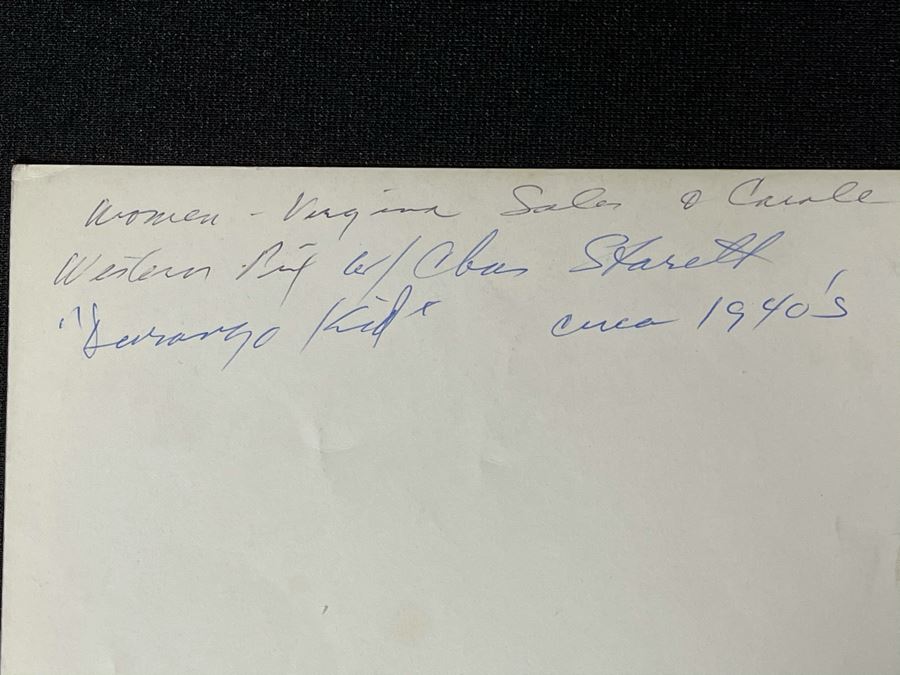 Women - Virginia Sales & Carole
Western Pix w/ Chas Starett
"Durango Kid" circa 1940's